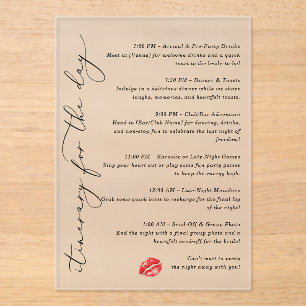 itinerary for the day
7:00 PM – Arrival & Pre-Party Drinks
Meet at [Venue] for welcome drinks and a quick
toast to the bride-to-be!
7:30 PM – Dinner & Toasts
Indulge in a delicious dinner while we share
laughs, memories, and heartfelt toasts.
9:00 PM – Club/Bar Adventure
Head to [Bar/Club Name] for dancing, drinks,
and non-stop fun to celebrate the last night of
freedom!
11:00 PM – Karaoke or Late-Night Games
Sing your heart out or play some fun party games
to keep the energy high.
12:00 AM – Late-Night Munchies
Grab some quick bites to recharge for the final lap
of the night!
1:00 AM – Send-Off & Group Photo
End the night with a final group photo and a
heartfelt sendoff for the bride!
Can't wait to party
the night away with you!